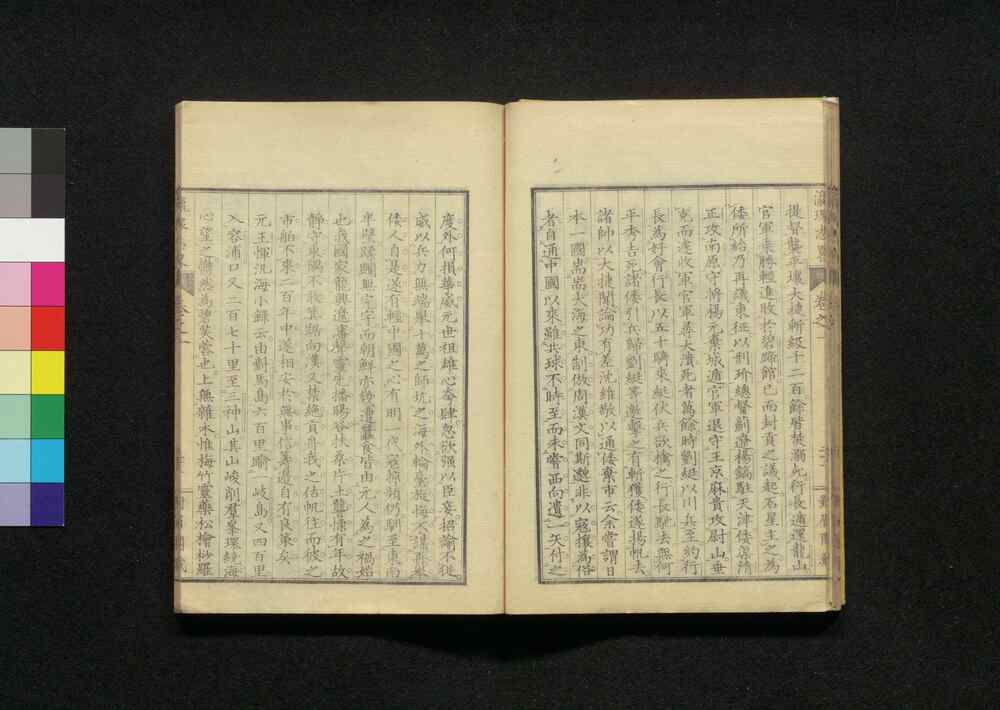 提督襲平壤大捷斬級千二百餘時焚溺死行長遁還龍山
官軍乘勝輕進敗於碧蹄館已而封貢之議起石星主之為
倭所紿乃再議東征以刑玠總督薊遼楊鎬駐天津倭忽清
正攻南原守將楊元棄城遁官軍退守王京麻貴攻尉山垂
克而遽收軍官軍大潰死者萬餘時劉綎以川兵至約行
長為好會行長以五十騎來綎伏兵欲擒之行長馳去無何
平秀吉死諸倭引兵歸劉綎等邀擊之有斬獲倭遂揚帆去
諸帥以大捷聞論功有差沈維敬以通倭棄市云余嘗謂日
本一國嵩嵩大海之東制倣周漢文同斯邈非以寇攘為俗
者自通中國以來雖共球不時至而未嘗西向遺一矢付之
度外何損華威元世祖雄心奮肆忽欲强以臣妾招諭不從
威以兵力無端舉十萬之師坑之海外輪臺
倭人自是遂有輕中國之心有明一代寇掠頻仍馴至東南
半壁蹂躪無完宇而朝鮮亦幾遭蠶食皆由元人為之禍始
也我國家龍興遼東聲靈先播暘谷扶桑片土讋慄有年故
靜守東隅不敢箕踞向漢又禁絶貢舟我之估帆往而彼之
市舶不來二百年中遂相安於無事信籌邊自有良策矣
元王惲汎海小錄云由對馬島六百里踰一岐島又四百里
入容浦口又二百七十里至三神山其山峻削羣峯環繞海
心望之鬱然為碧芙蓉也上無雜木惟梅竹靈藥松檜杪羅
卷之一